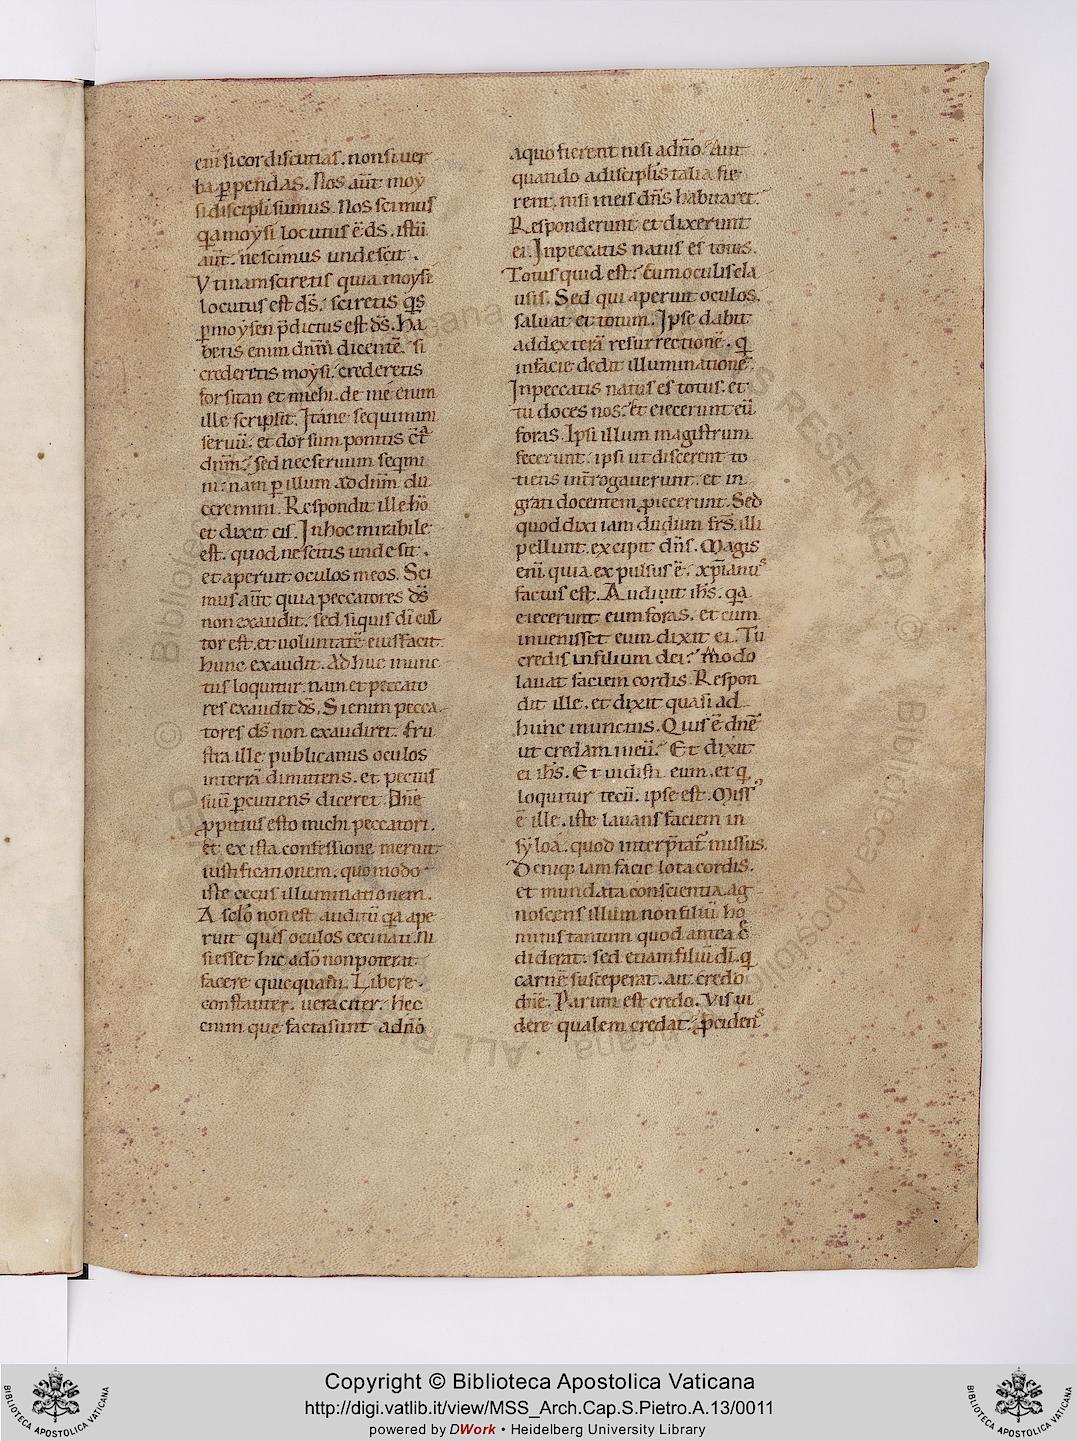 eni si cor discutias. non si uer
ba ꝑpendas. Nos aut̅ moy
si discipli̅ sumus. Nos scimus
qa moysi locutus e̅ ds̅. istu̅
aut̅. nescimus unde sit.
Vtinam sciretis quia moysi
locutus est ds̅. sciretis qs
ꝑ moysen p̅dictus est ds̅. Ha
betis enim dnm̅ dicente̅. si
crederetis moysi. crederetis
forsitan et michi. de me enim
ille scripsit. Itane sequimini
seruu̅. et dorsum ponitis ct̅ᵃ
dnm̅. sed nec seruum seqmi
ni. nam ꝑ illum ad dnm̅ du
ceremini. Respondit ille ho̅
et dixit eis. In hoc mirabile
est. quod nescitis unde sit.
et aperuit oculos meos. Sci
mus aut̅ quia peccatores ds̅
non exaudit. sed si quis di̅ cul
tor est. et uoluntate̅ eius facit.
hunc exaudit. Adhuc inunc
tus loquitur. nam et peccato
res exaudit ds̅. Si enim pecca
tores ds̅ non exaudiret. fru
stra ille publicanus oculos
in terra̅ dimittens. et pectus
suu̅ ꝑcutiens diceret. Dne̅
ꝓpitius esto michi peccatori.
et ex ista confessione meruit
iustificationem. quomodo
iste cecus illuminationem.
A sclo̅ non est auditu̅ qa ape
ruit quis oculos ceci nati. Ni
si esset hic a do̅ non poterat
facere quicqua̅. Libere.
constanter. ueraciter. hec
enim que facta sunt a dno̅
a quo fierent nisi a dno̅. Aut
quando a discipli̅s talia fie
rent. nisi in eis dn̅s habitaret.
Responderunt et dixerunt
ei. In peccatis natus es totus.
Totus quid est. Cum oculis cla
usis. Sed qui aperuit oculos.
saluat et totum. Ipse dabit
ad dextera̅ resurrectione̅. q
in facie dedit illuminatione̅.
In peccatis natus es totus. et
tu doces nos. et eiecerunt eu̅
foras. Ipsi illum magistrum
fecerunt. ipsi ut discerent to
tiens int̅rogauerunt. et in
grati docentem ꝓiecerunt. Sed
quod dixi iam dudum frs̅. illi
pellunt. excipit dn̅s. Magis
eni̅ quia expulsus e̅. xp̅ianus
factus est. Audiuit ihs̅. qa
eiecerunt eum foras. et cum
inuenisset eum dixit ei. Tu
credis in filium dei. Modo
lauat faciem cordis. Respon
dit ille. et dixit quasi ad
huc inunctus. Quis e̅ dne̅
ut credam in eu̅. Et dixit
ei ihs̅. Et uidisti eum. et q
loquitur tecu̅. ipse est. Miss⁹
e̅ ille. iste lauans faciem in
syloa̅. quod interp̅tat᷑ missus.
Deniq; iam facie lota cordis.
et mundata conscientia. ag
noscens illum non filiu̅ ho
minis tantum quod antea c̅
diderat. sed etiam filiu̅ di̅. q
carne̅ susceperat. ait credo
dne̅. Parum est credo. Vis ui
dere qualem credat. ꝓcidens
Copyright © Biblioteca Apostolica Vaticana
http://digi.vatlib.it/view/MSS_Arch.Cap.S.Pietro.A.13/0011
powered by DWork • Heidelberg University Library